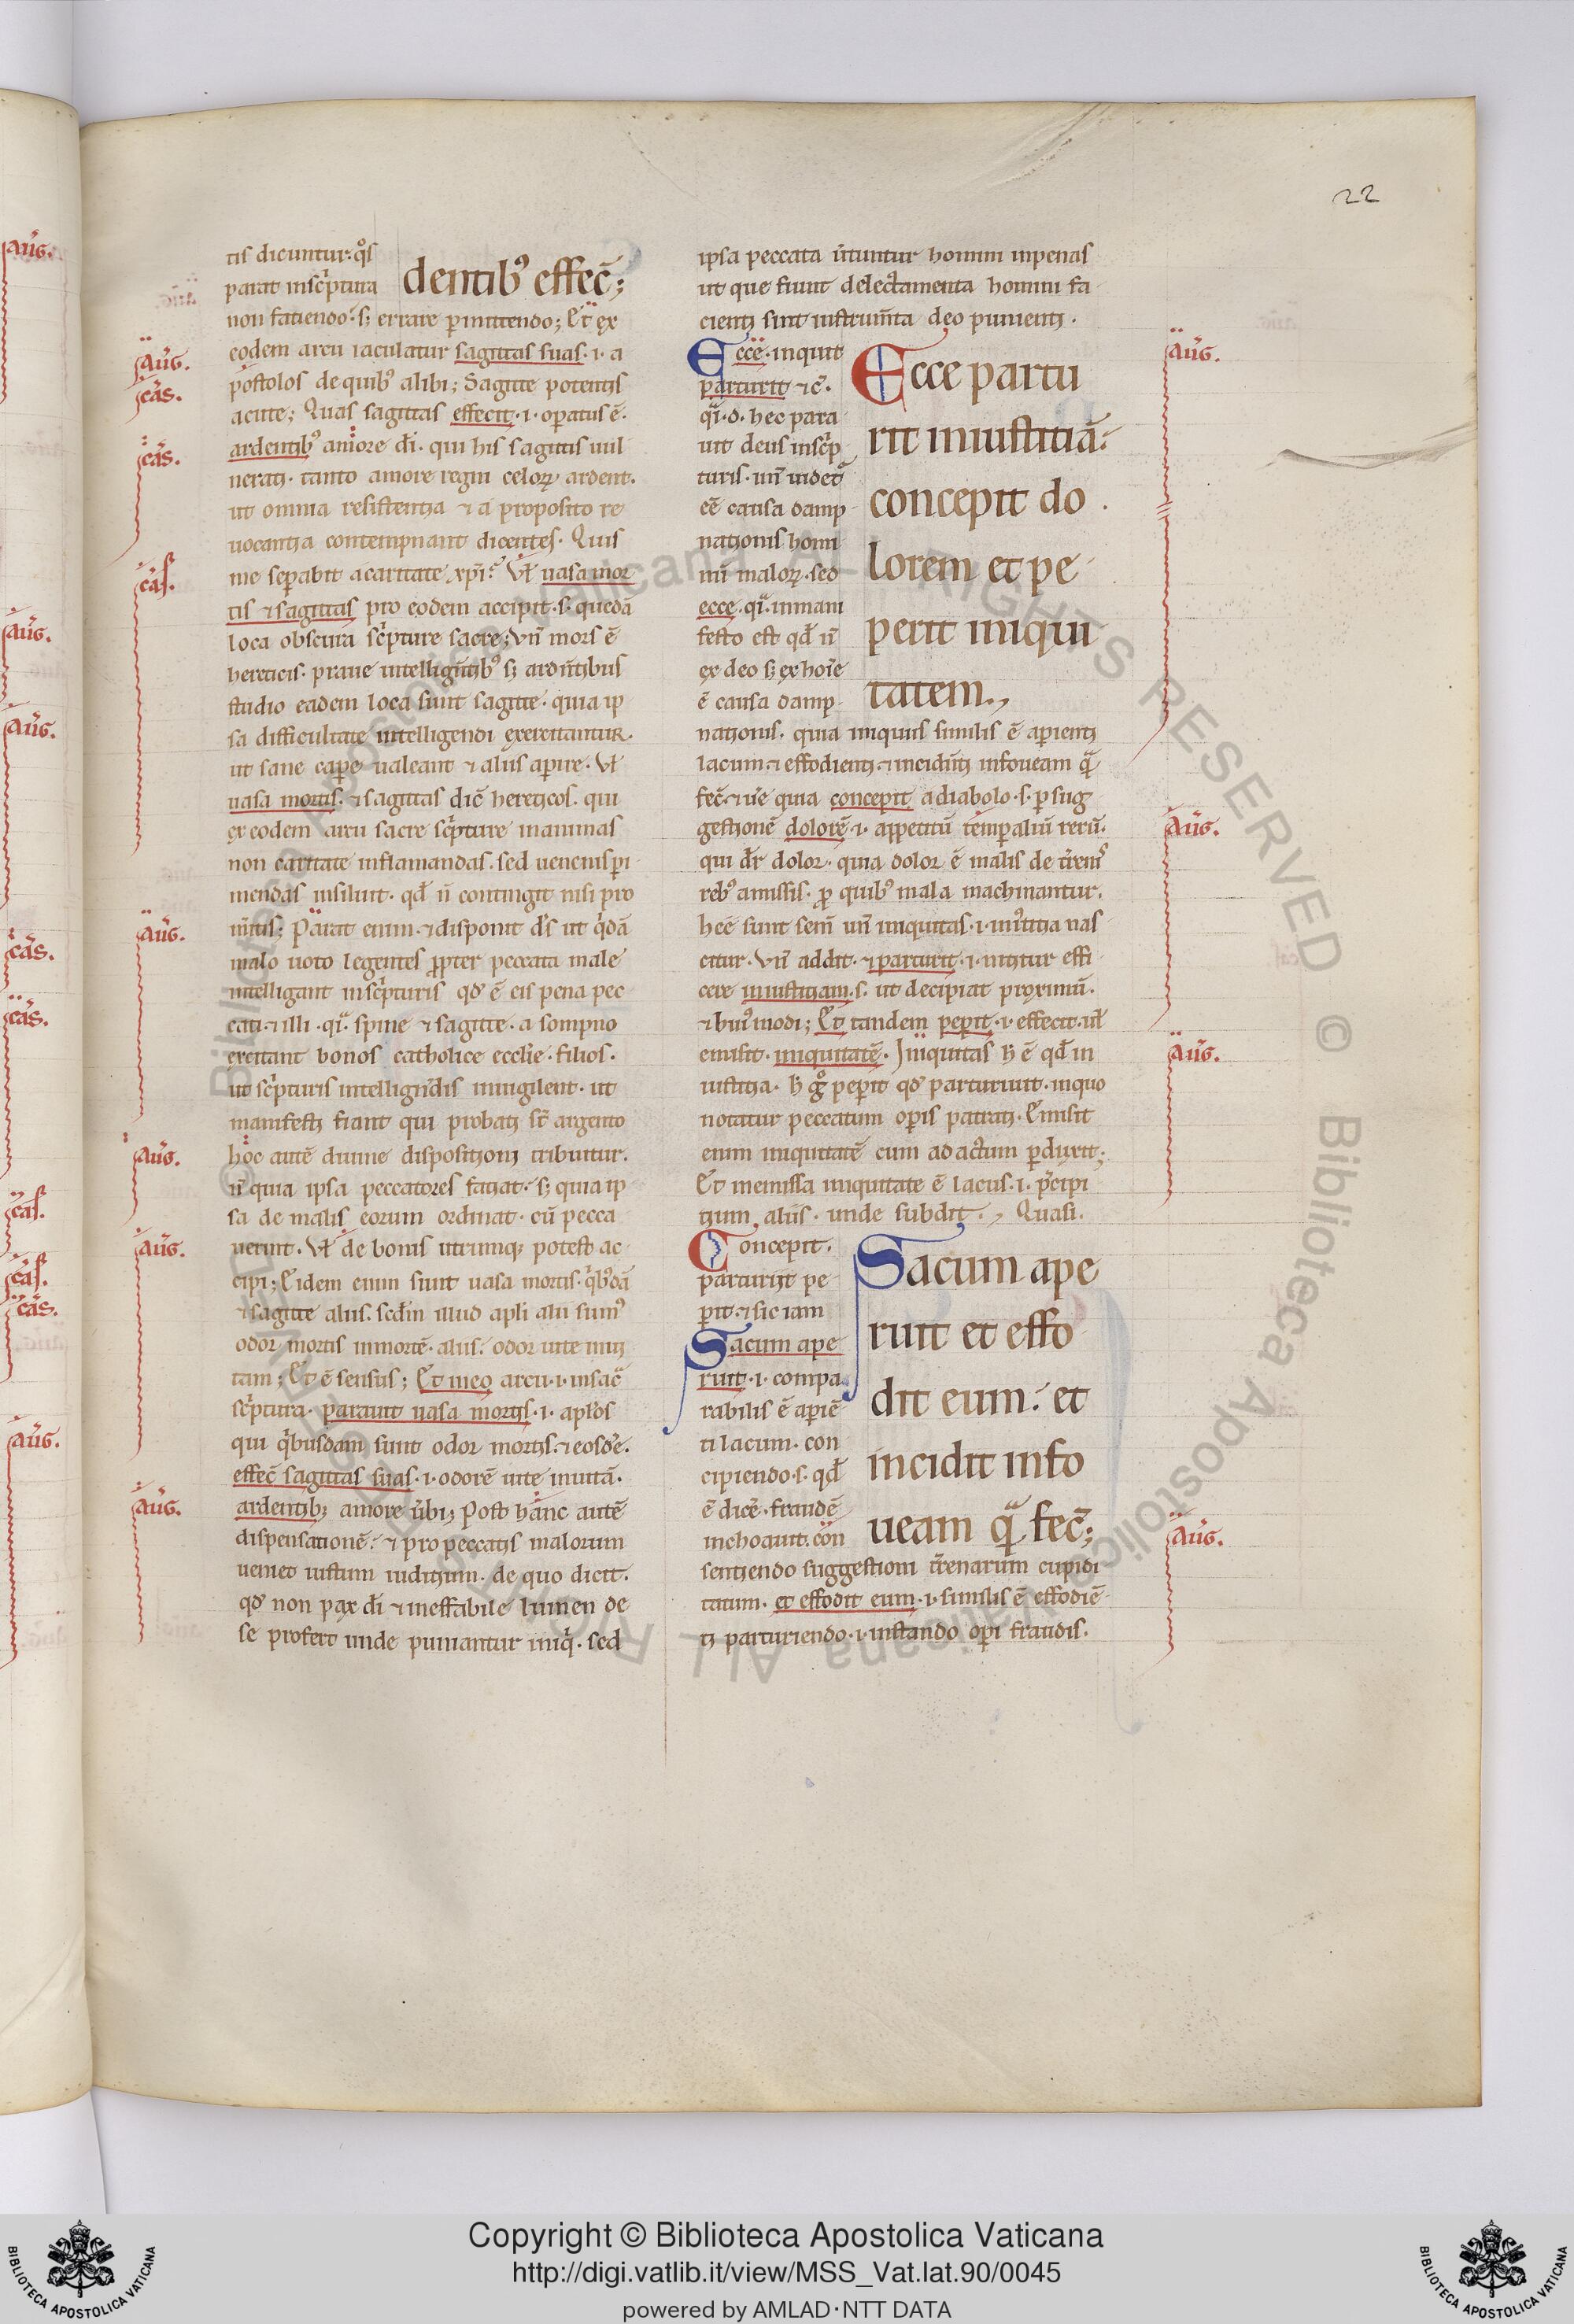 22
tis dicuntur. q̊s
parat inscͥptura
dentibꝰ effec̄;
non faciendo. sꝫ errare ꝑmittendo; Et ex
eodem arcu iaculatur sagittas suas .i. a
postolos de quibꝰ alibi; Sagitte potentis
acute; Quas sagittas effecit .i. opatus ē.
ardentibꝰ amore di. qui his sagittis uul
nerati. tanto amore regni celoꝝ ardent.
ut omnia resistentia ⁊ a proposito re
uocantia contempnant dicentes. Quis
me sepabit acaritate xp̄i? Vł uasa mor
tis ⁊ sagittas pro eodem accipit .s. quedā
loca obscura scͥpture sacre; vn̄ mors ē
hereticis. praue intellign̄tibꝰ sꝫ ardn̄tibus
studio eadem loca sunt sagitte. quia ip
sa difficultate intelligendi exercitantur.
ut sane cape ualeant ⁊ aliis apire. Vł
uasa mortis. ⁊ sagittas dic̄ hereticos. qui
ex eodem arcu sacre scͥpture in animas
non caritate inflamandas. sed uenenis pi
mendas insiliunt. qđ n̄ contingit nisi pro
m̄itis; Parat enim. ⁊ disponit dˢ ut qͥdā
malo uoto legentes ꝓpter peccata male
intelligant inscͥpturis qđ ē eis pena pec
cati. ⁊ illi .qͣ. spine ⁊ sagitte. a sompno
excitant bonos catholice eccl̄ie. filios.
ut scͥpturis intellign̄dis inuigilent. ut
manifesti fiant qui probati st̄ argento
hoc autē diuine dispositioni tribuitur.
n̄ quia ipsa peccatores faciat. sꝫ quia ip
sa de malis eorum ordinat. cū pecca
uerint. Vł de bonis utrumqꝫ potest ac
cipi; Eidem enim sunt uasa mortis. qͥbꝰdā
⁊ sagitte aliis. scđm illud apli alii sumꝰ
odor mortis in mortē. aliis. odor uite in ui
tam; Et ē sensus; Et in eo arcu .i. in sac̄
scͥptura. parauit uasa mortis .i. aplōs
qui qͥbusdam sunt odor mortis. ⁊ eosdē.
effec̄ sagittas suas .i. odorē uite in uitā.
ardentibꝫ amore ūbi; Post hanc autē
dispensationē. ⁊ pro peccatis malorum
ueniet iustum iudicium. de quo dicit.
qđ non pax di ⁊ ineffabile lumen de
se profert unde puniantur iniqͥ. sed
ipsa peccata ūtuntur homini in penas
ut que fiunt delectamenta homini fa
cienti sint instrum̄ta deo punienti.
Ecce. inquit
parturit ⁊c̄.
qͣ. d. hec para
uit deus inscͥp
turis. un̄ uidet᷑
eē causa damp
nationis homi
nū maloꝝ. sed
ecce. qͣ. in mani
festo est qđ n̄
ex deo sꝫ ex hoīe
ē causa damp
Ecce partu
rit iniustitiā.
concepit do
lorem et pe
perit iniqui
tatem.,
nationis. quia iniquus similis ē apienti
lacum ⁊ effodienti. ⁊ incidn̄ti in foueam qͣ
fec̄. ⁊ ue quia concepit a diabolo .s. ꝑ sug
gestionē dolorē .i. appetitū tempaliū rerū.
qui dr̄ dolor. quia dolor ē malis de t̄renꝰ
rebꝰ amissis. ꝓ quibꝰ mala machinantur.
hec̄ sunt sem̄ un̄ iniquitas .i. iniͥstitia nas
citur. Vn̄ addit. ⁊ parturit .i. nititur effi
cere iniustitiam .s. ut decipiat proximū.
⁊ huiꝰmodi; Et tandem pepit .i. effecit. ul̄
emisit. iniquitatē. Iniquitas ħ ē qđ in
iustitia. ħ g̊ pepit qđ parturiuit. in quo
notatur peccatum opis patrati. Emisit
enim iniquitatē cum ad actum pduxit;
Et in emissa iniquitate ē lacus .i. pͥcipi
tium aliis. unde subdit., Quasi.
Concepit.
parturiit pe
pit. ⁊ sic iam
Lacum ape
ruit .i. compa
rabilis ē apiē
ti lacum. con
cipiendo .s. qđ
ē dice. fraudē
inchoauit. con
Lacum ape
ruit et effo
dit eum. et
incidit in fo
ueam qͣ fec̄;
sentiendo suggestioni t̄renarum cupidi
tatum. et effodit eum .i. similis ē effodiē
ti parturiendo .i. instando opi fraudis.
aūg.
cās.
cās.
cās.
aūg.
aūg.
aūg.
aūg.
aūg.
aūg.
aūg.
aūg.
aūg.
aūg.
aūg.
cās.
cās.
cās.
cās.
cās.
aūg.
© Biblioteca Apostolica Vaticana ALL RIGHTS RESERVED © Biblioteca Apostolica Vaticana ALL RIGHTS RESERVED
Copyright © Biblioteca Apostolica Vaticana
http://digi.vatlib.it/view/MSS_Vat.lat.90/0045
powered by AMLAD·NTT DATA
BIBLIOTECA APOSTOLICA VATICANA
BIBLIOTECA APOSTOLICA VATICANA